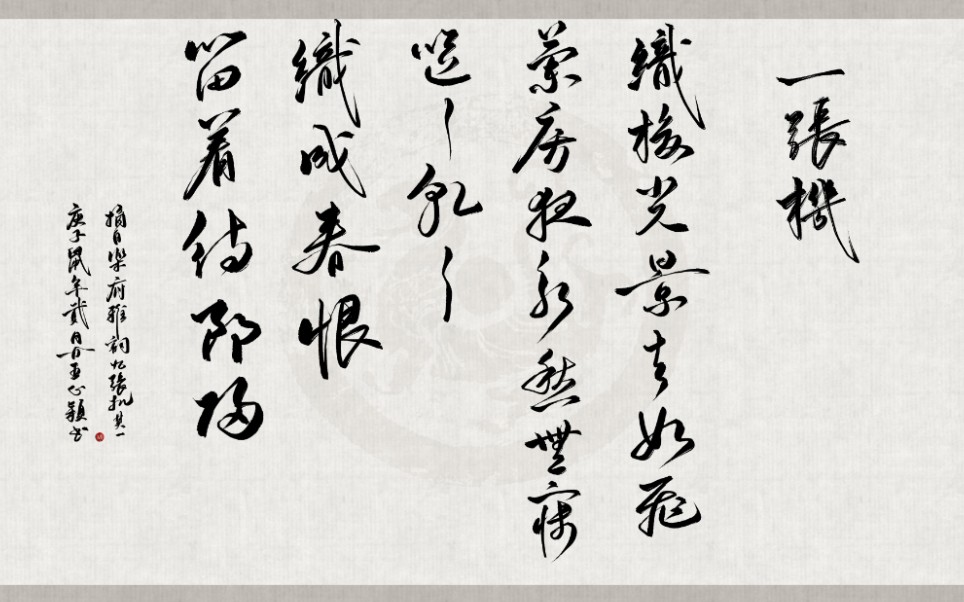 一張機
織梭光景去如飛
蘭房夜永愁無寐
嘔〻軋〻
織成春恨
留着待郎歸
摘自樂府雅詞九張机其一
庚子鼠年貳月心穎书